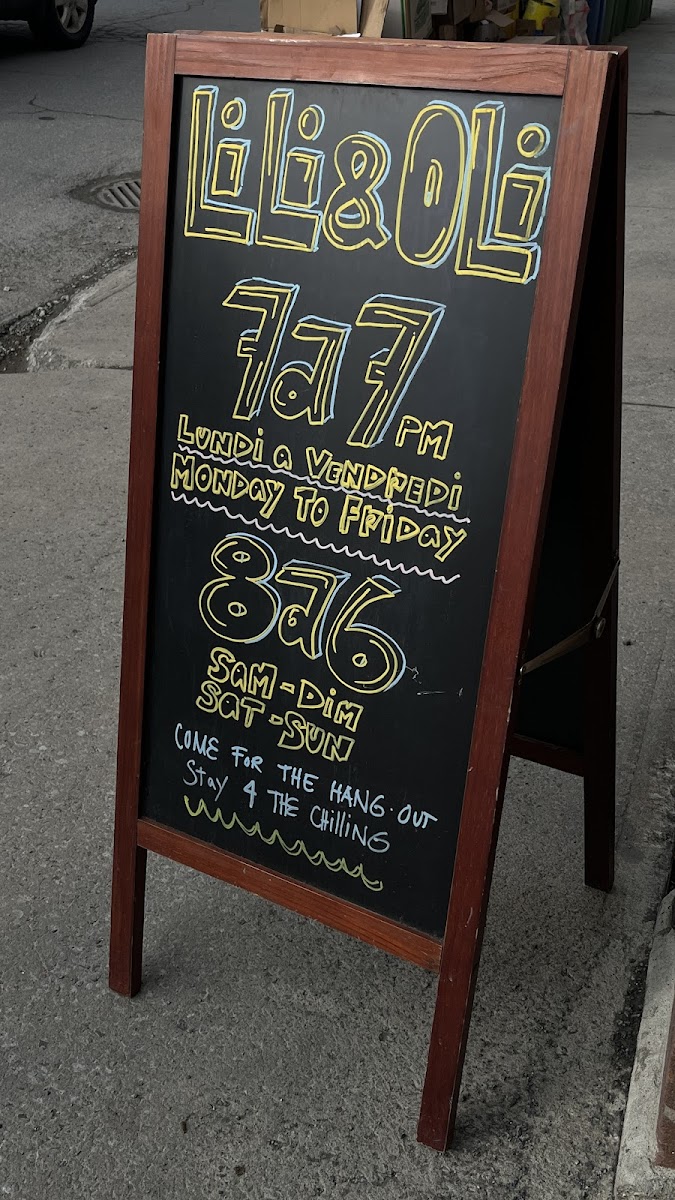 LiLi & OLi
7 à 7 PM
LUNDi a VENDREDi
MONDAY TO FRiDAY
8 à 6
SAM - DiM
SAT - SUN
COME FOR THE HANG-OUT
Stay 4 THE CHilliNG